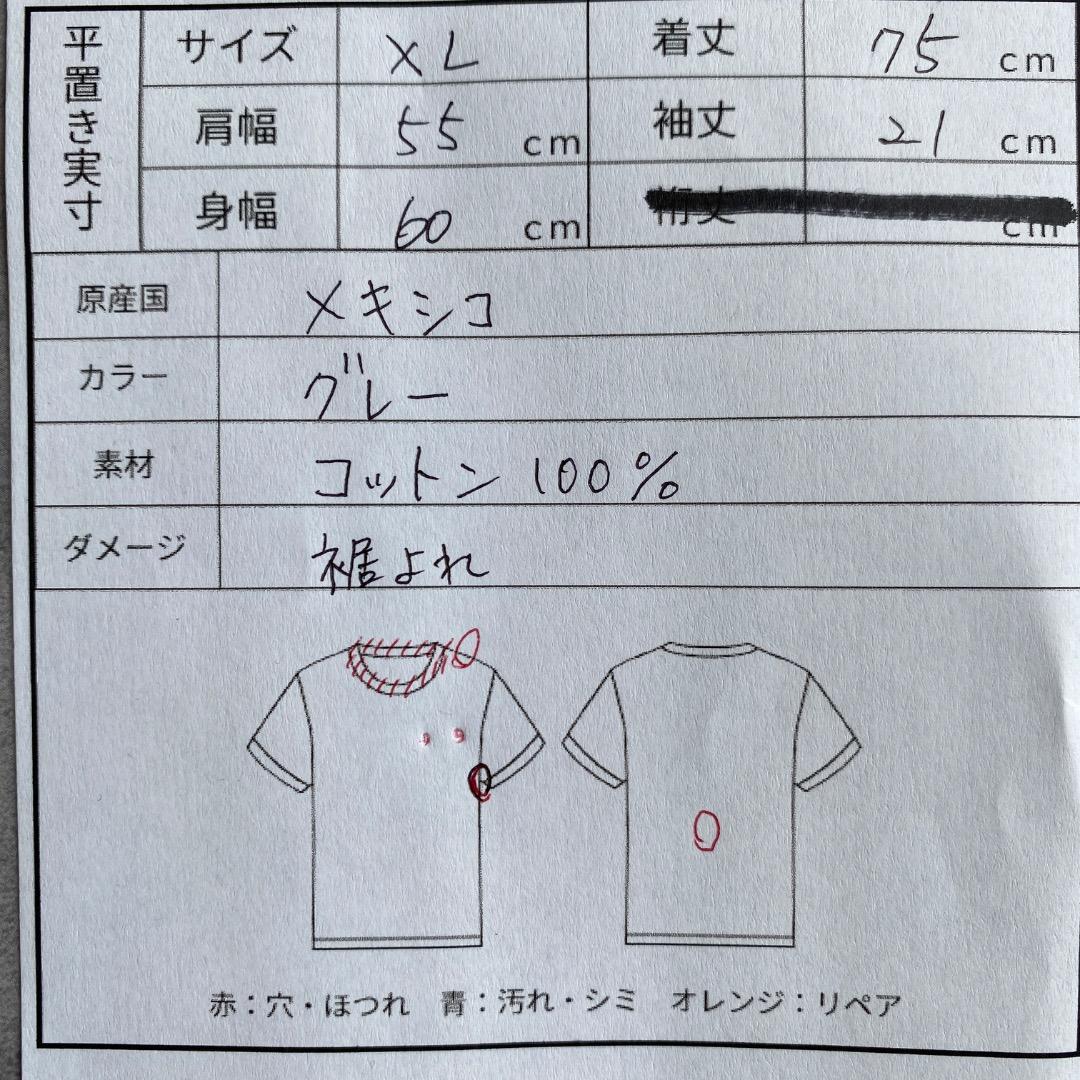 平置き実寸
サイズ XL 着丈 75 cm
肩幅 55 cm 袖丈 21 cm
身幅 60 cm 裄丈 cm
原産国 メキシコ
カラー グレー
素材 コットン 100%
ダメージ 裾よれ
赤：穴・ほつれ 青：汚れ・シミ オレンジ：リペア